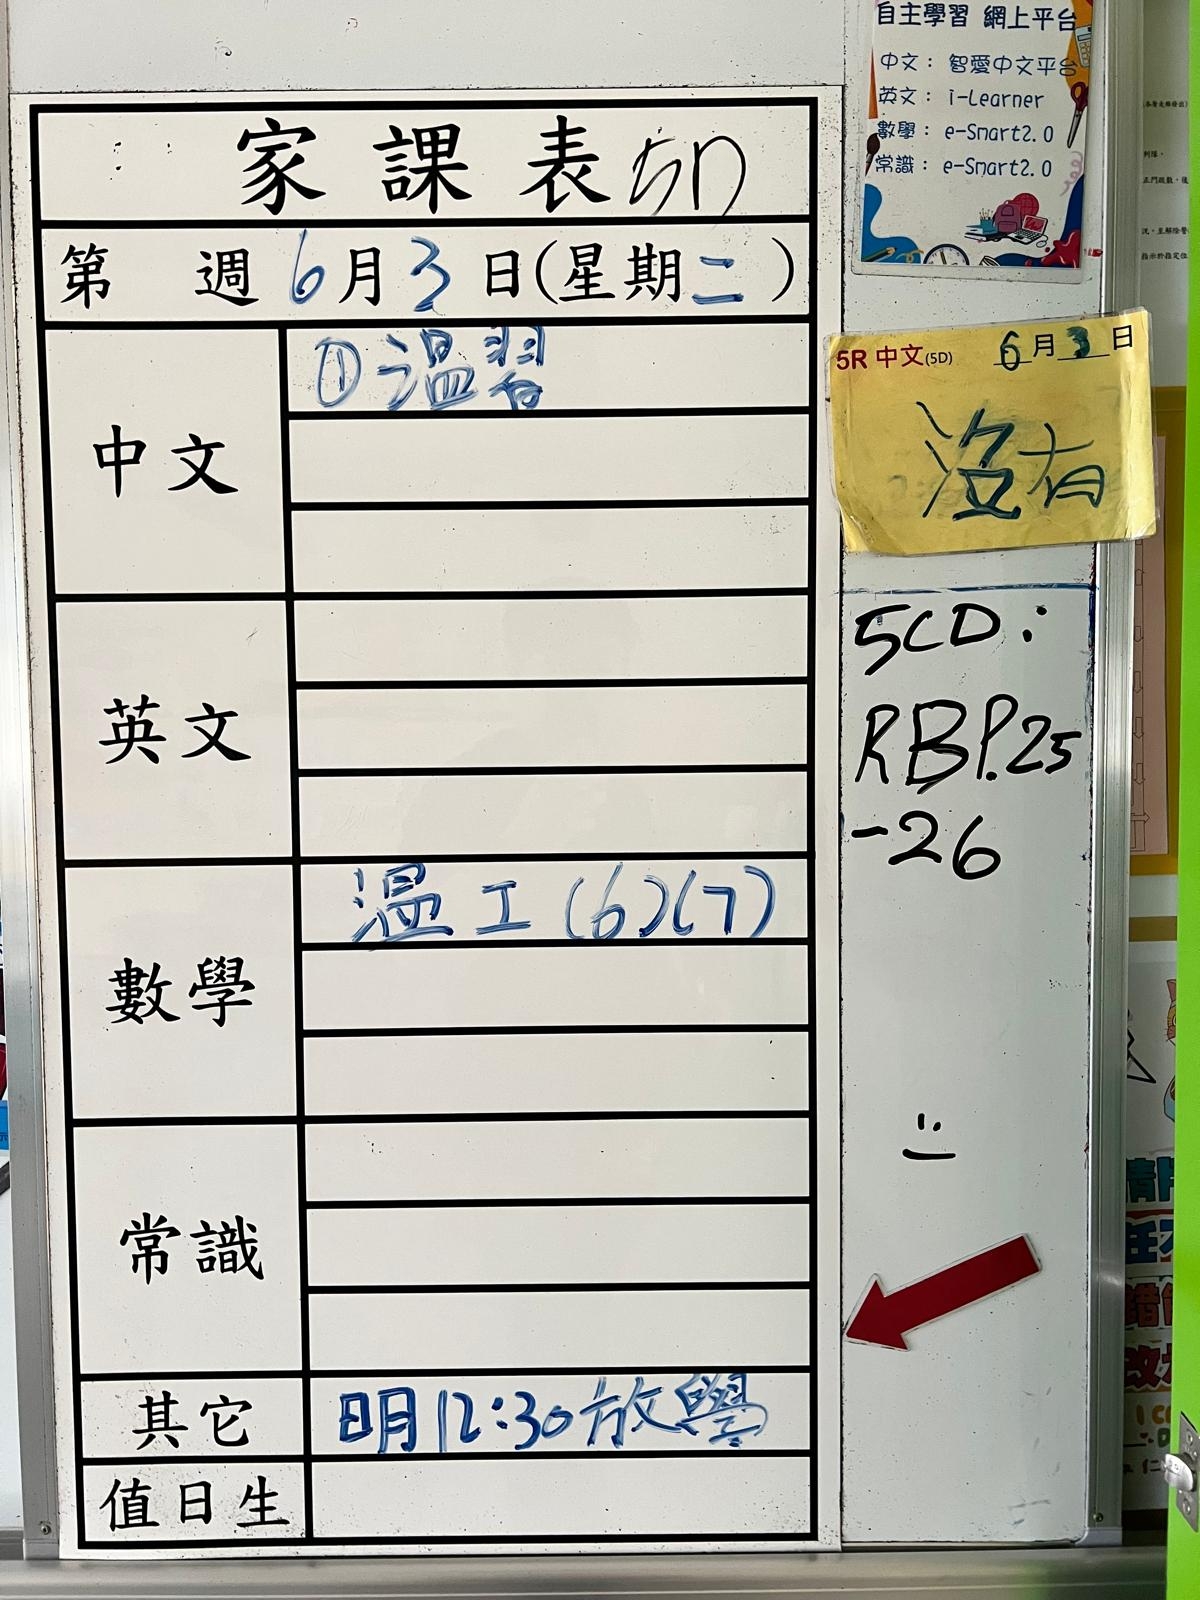 家課表 5D
第 週 6月3日(星期二)
中文
①溫習
英文
數學
溫工(6)(7)
常識
其它
明12:30放學
值日生
自主學習 網上平台
中文：智愛中文平台
英文：i-Learner
數學：e-Smart2.0
常識：e-Smart2.0
5R 中文(5D) 6月3日
沒有
5CD:
RB P.25
-26